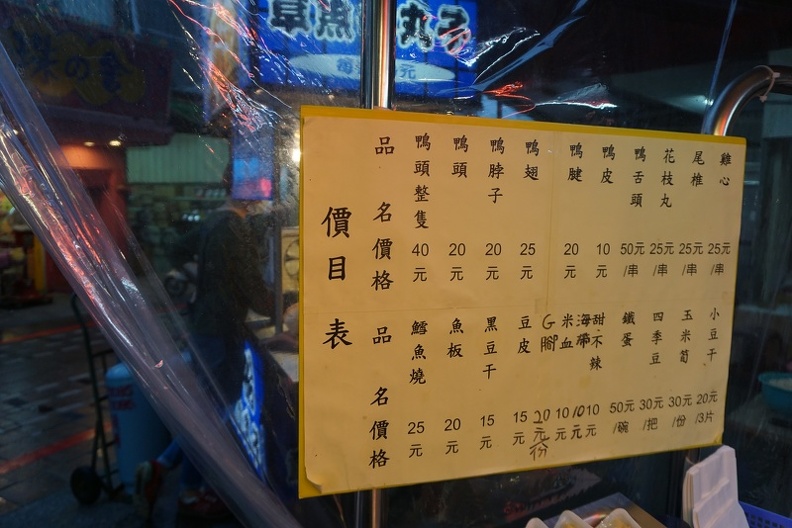 草魚 丸子
價目表
品名 鴨頭整隻 鴨頭 鴨脖子 鴨翅 鴨腱 鴨皮 鴨舌頭 花枝丸 尾椎 雞心
價格 40元 20元 20元 25元 20元 10元 50元/串 25元/串 25元/串 25元/串
品名 鱈魚燒 魚板 黑豆干 豆皮 G腳 米血 海帶 甜不辣 鐵蛋 四季豆 玉米筍 小豆干
價格 25元 20元 15元 15元 20元份 10元 10元 10元 50元/碗 30元/把 30元/份 20元/3片